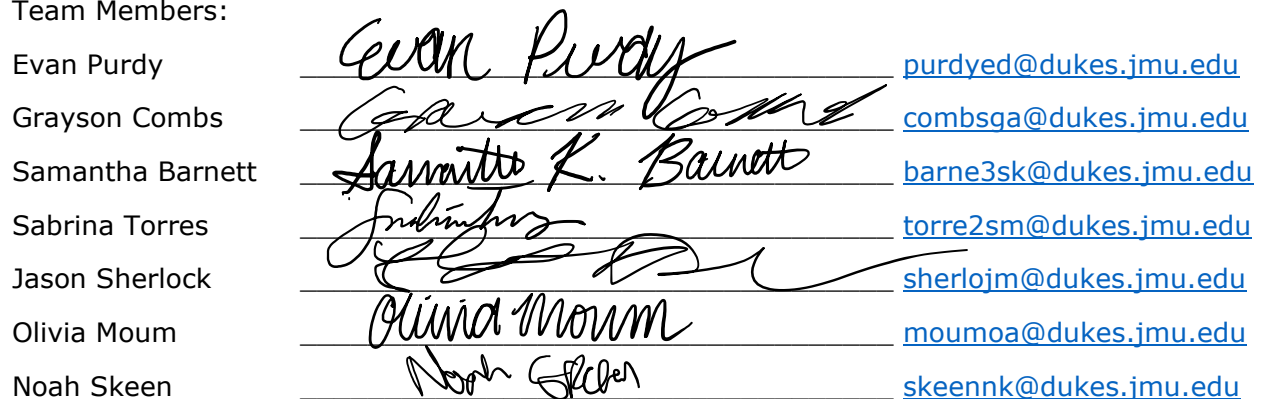 Team Members:
Evan Purdy Evan Purdy purdyed@dukes.jmu.edu
Grayson Combs combsga@dukes.jmu.edu
Samantha Barnett Samantha K. Barnett barne3sk@dukes.jmu.edu
Sabrina Torres torre2sm@dukes.jmu.edu
Jason Sherlock sherlojm@dukes.jmu.edu
Olivia Moum Olivia Moum moumoa@dukes.jmu.edu
Noah Skeen Noah Skeen skeennk@dukes.jmu.edu